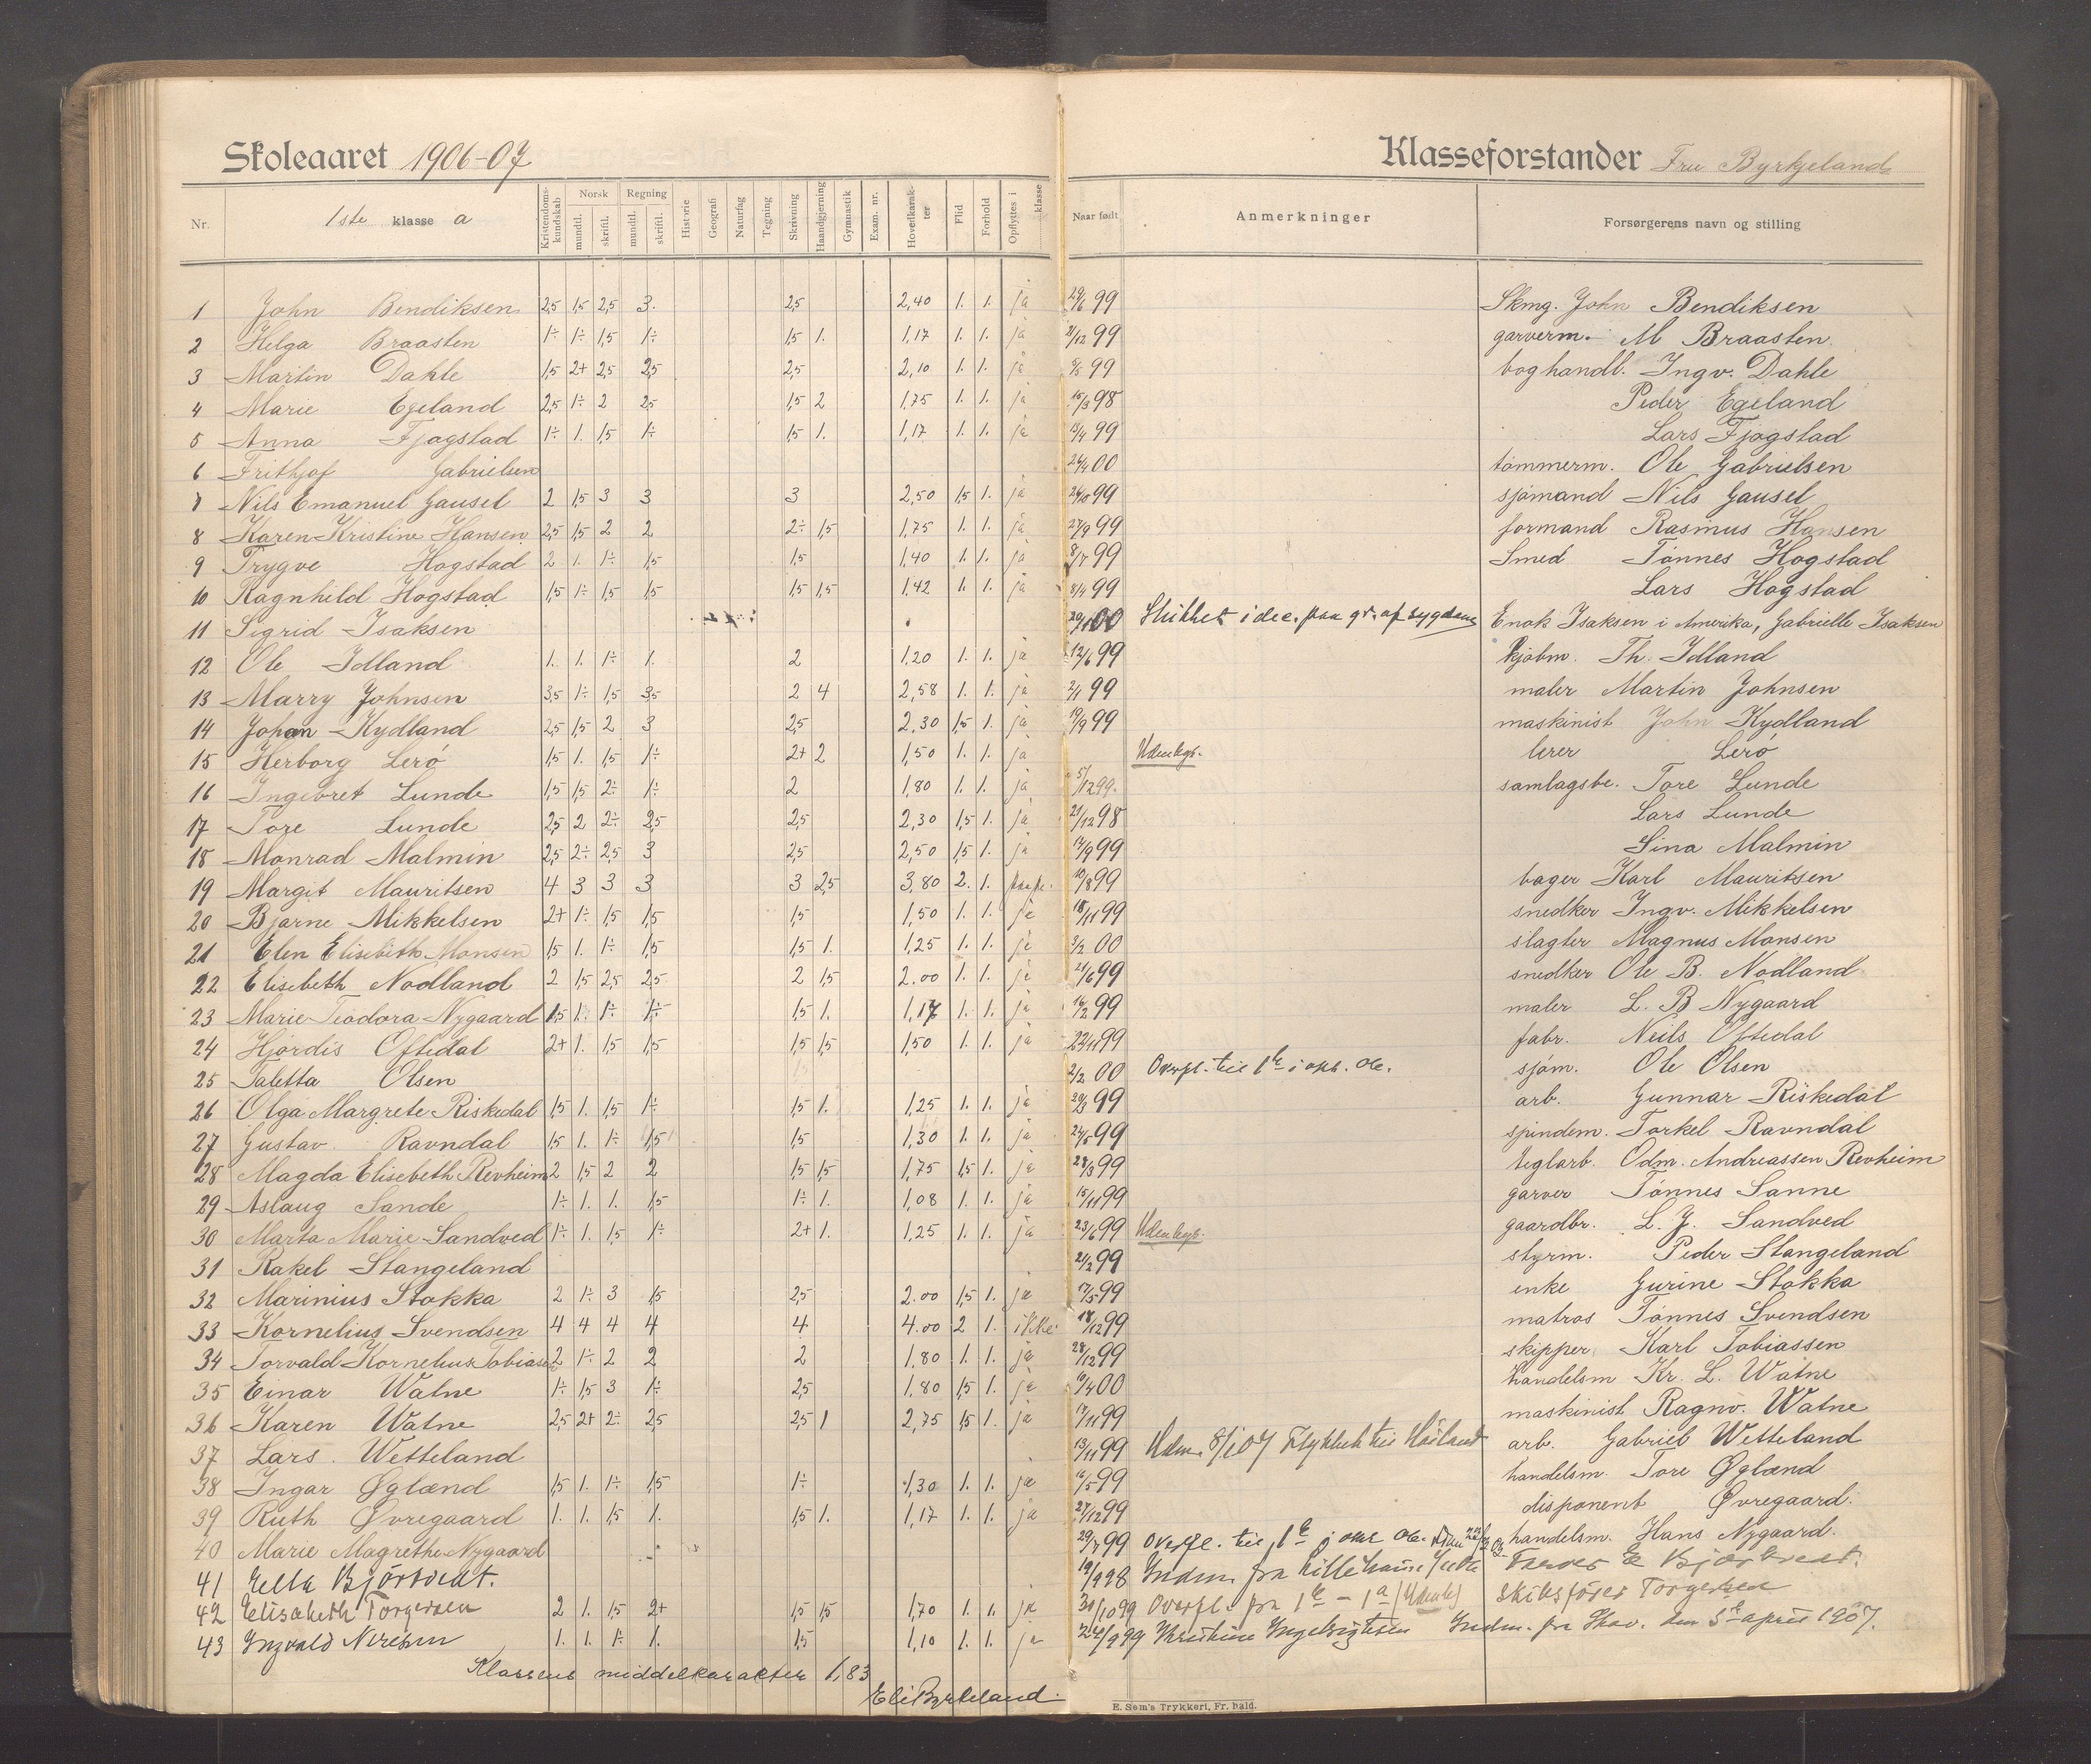 Skoleaaret 1906-07 Klasseforstander Fru Byrkjeland
Nr. 1ste klasse a Kristendoms-kundskab Norsk mundtl. skriftl. Regning mundtl. skriftl. Historie Geografi Naturfag Tegning Skrivning Haandgjerning Gymnastik Exam. nr. Hovedkarak-ter Flid Forhold Opflyttes i klasse Naar født Anmerkninger Forsørgerens navn og stilling
1 John Bendiksen 2,5 1,5 2,5 3. 2,5 2,40 1. 1. ja 29/6 99 Skmg. John Bendiksen
2 Helga Braasten 1÷ 1÷ 1,5 1÷ 1,5 1. 1,17 1. 1. ja 21/12 99 garverm. M Braasten
3 Martin Dahle 1,5 2+ 2,5 2,5 2,5 2,10 1. 1. ja 99 boghandl. Ingv. Dahle
4 Marie Egeland 2,5 1÷ 2 2,5 1,5 2 1,75 1. 1. ja 15/3 98 Peder Egeland
5 Anna Fjogstad 1÷ 1. 1,5 1÷ 1,5 1. 1,17 1. 1. ja 99 Lars Fjogstad
6 Frithjof Gabrielsen 24/4 00 tømmerm. Ole Gabrielsen
7 Nils Emanuel Gausel 2 1,5 3 3 3 2,50 1,5 1. ja 99 sjømand Nils Gausel
8 Karen Kristine Hansen 2,5 1,5 2 2 2÷ 1,5 1,75 1. 1. ja 27/9 99 formand Rasmus Hansen
9 Trygve Hogstad 2 1. 1÷ 1,5 1,5 1,40 1. 1. ja 8/7 99 Smed Tønnes Hogstad
10 Ragnhild Hogstad 1,5 1÷ 1,5 1,5 1,5 1,5 1,42 1. 1. ja 99 Lars Hogstad
11 Sigrid Isaksen 00 Sluttet i dec. paa gr. af sygdom Enok Isaksen i Amerika, Gabrielle Isaksen
12 Ole Idland 1. 1. 1÷ 1. 2 1,20 1. 1. ja 12/6 99 kjøbm. Th. Idland
13 Marry Johnsen 3,5 1÷ 1,5 3,5 2 4 2,58 1. 1. ja 2/1 99 maler Martin Johnsen
14 Johan Kydland 2,5 1,5 2 3 2,5 2,30 1,5 1. ja 19/9 99 maskinist John Kydland
15 Herborg Lerø 1,5 1. 1,5 1÷ 2+ 2 1,50 1. 1. ja Udenbys. lerer Lerø
16 Ingebret Lunde 1,5 1,5 2÷ 1÷ 2 1,80 1. 1. ja 5/12 99. samlagsbe. Tore Lunde
17 Tore Lunde 2,5 2 2÷ 2,5 2,5 2,30 1,5 1. ja 21/12 98 Lars Lunde
18 Monrad Malmin 2,5 2÷ 2,5 3 2,5 2,50 1,5 1. ja 17/9 99 Sina Malmin
19 Margit Mauritsen 4 3 3 3 3 2,5 3,80 2. 1. 10/8 99 bager Karl Mauritsen
20 Bjarne Mikkelsen 2+ 1÷ 1,5 1,5 1,5 1,50 1. 1. ja 18/11 99 snedker Ingv. Mikkelsen
21 Elen Elisebeth Monsen 1,5 1. 1÷ 1,5 1,5 1. 1,25 1. 1. ja 3/2 00 slagter Magnus Monsen
22 Elisebeth Nodland 2 1,5 2,5 2,5 2 1,5 2.00 1. 1. ja 21/6 99 snedker Ole B. Nodland
23 Marie Teodora Nygaard 1,5 1. 1÷ 1÷ 1,5 1. 1,17 1. 1. ja 16/2 99 maler L. B Nygaard
24 Hjørdis Oftedal 2+ 1. 1,5 1,5 1,5 1,5 1,50 1. 1. ja 22/11 99 fabr. Neils Oftedal
25 Taletta Olsen 2/2 00 Overfl. til 1k i okt. 06. sjøm. Ole Olsen
26 Olga Margrete Riskedal 1,5 1. 1,5 1÷ 1,5 1. 1,25 1. 1. ja 99 arb. Gunnar Riskedal
27 Gustav Ravndal 1,5 1. 1÷ 1,5 1,5 1,30 1. 1. ja 99 spindem. Torkel Ravndal
28 Magda Elisebeth Revheim 2 1,5 2 2 1,5 1,5 1,75 1,5 1. ja 28/3 99 teglarb. Odm. Andreassen Revheim
29 Aslaug Sande 1÷ 1. 1. 1,5 1÷ 1. 1,08 1. 1. ja 15/11 99 garver Tønnes Sanne
30 Marta Marie Sandved 1÷ 1. 1,5 1÷ 2+ 1. 1,25 1. 1. ja 23/6 99 Udenbys. gaardbr. L. J. Sandved
31 Rakel Stangeland 21/2 99 styrm. Peder Stangeland
32 Marinius Stokka 2 1÷ 3 1,5 2,5 2.00 1,5 1. ja 17/5 99 enke Gurine Stokka
33 Kornelius Svendsen 4 4 4 4 4 4.00 2 1. ikke 18/12 99 matros Tønnes Svendsen
34 Torvald Kornelius Tobiasen 2 1÷ 2 2 2 1,80 1. 1. ja 28/12 99 skipper Karl Tobiassen
35 Einar Watne 1÷ 1,5 3 1÷ 2,5 1,80 1,5 1. ja 00 handelsm Kr. L. Watne
36 Karen Watne 2,5 2+ 2÷ 2,5 2,5 1 2,75 1,5 1. ja 17/11 99 maskinist Ragnv. Watne
37 Lars Wetteland 13/11 99 Udm. 8/1 07 Flyttet til Høiland arb. Gabriel Wetteland
38 Ingar Øglænd 1,5 1. 1÷ 1,5 1÷ 1,30 1. 1. ja 16/5 99 handelsm. Tore Øglænd
39 Ruth Øvregaard 1. 1. 1,5 1. 1,5 1. 1,17 1. 1. ja 27/12 99 disponent Øvregaard.
40 Marie Magrethe Nygaard 29/7 99 Overfl. til 1k i okt 06. handelsm. Hans Nygaard.
41 Ella Bjørtvedt. 19/9 98 Indm. fra
42 Elisabeth Torgersen 2 1. 1,5 2+ 1,5 1,5 1,70 1. 1. ja 31/10 99 Overfl. fra 1k - 1a skibsfører Torgersen
43 Ingvald 1. 1. 1÷ 1. 1,5 1,10 1. 1. ja 24/9 99 Indm. fra Skov. den 3 april 1907.
Klassens middelkarakter 1,83
Eli Byrkeland.
E. Sem's Trykkeri, Fr.hald.